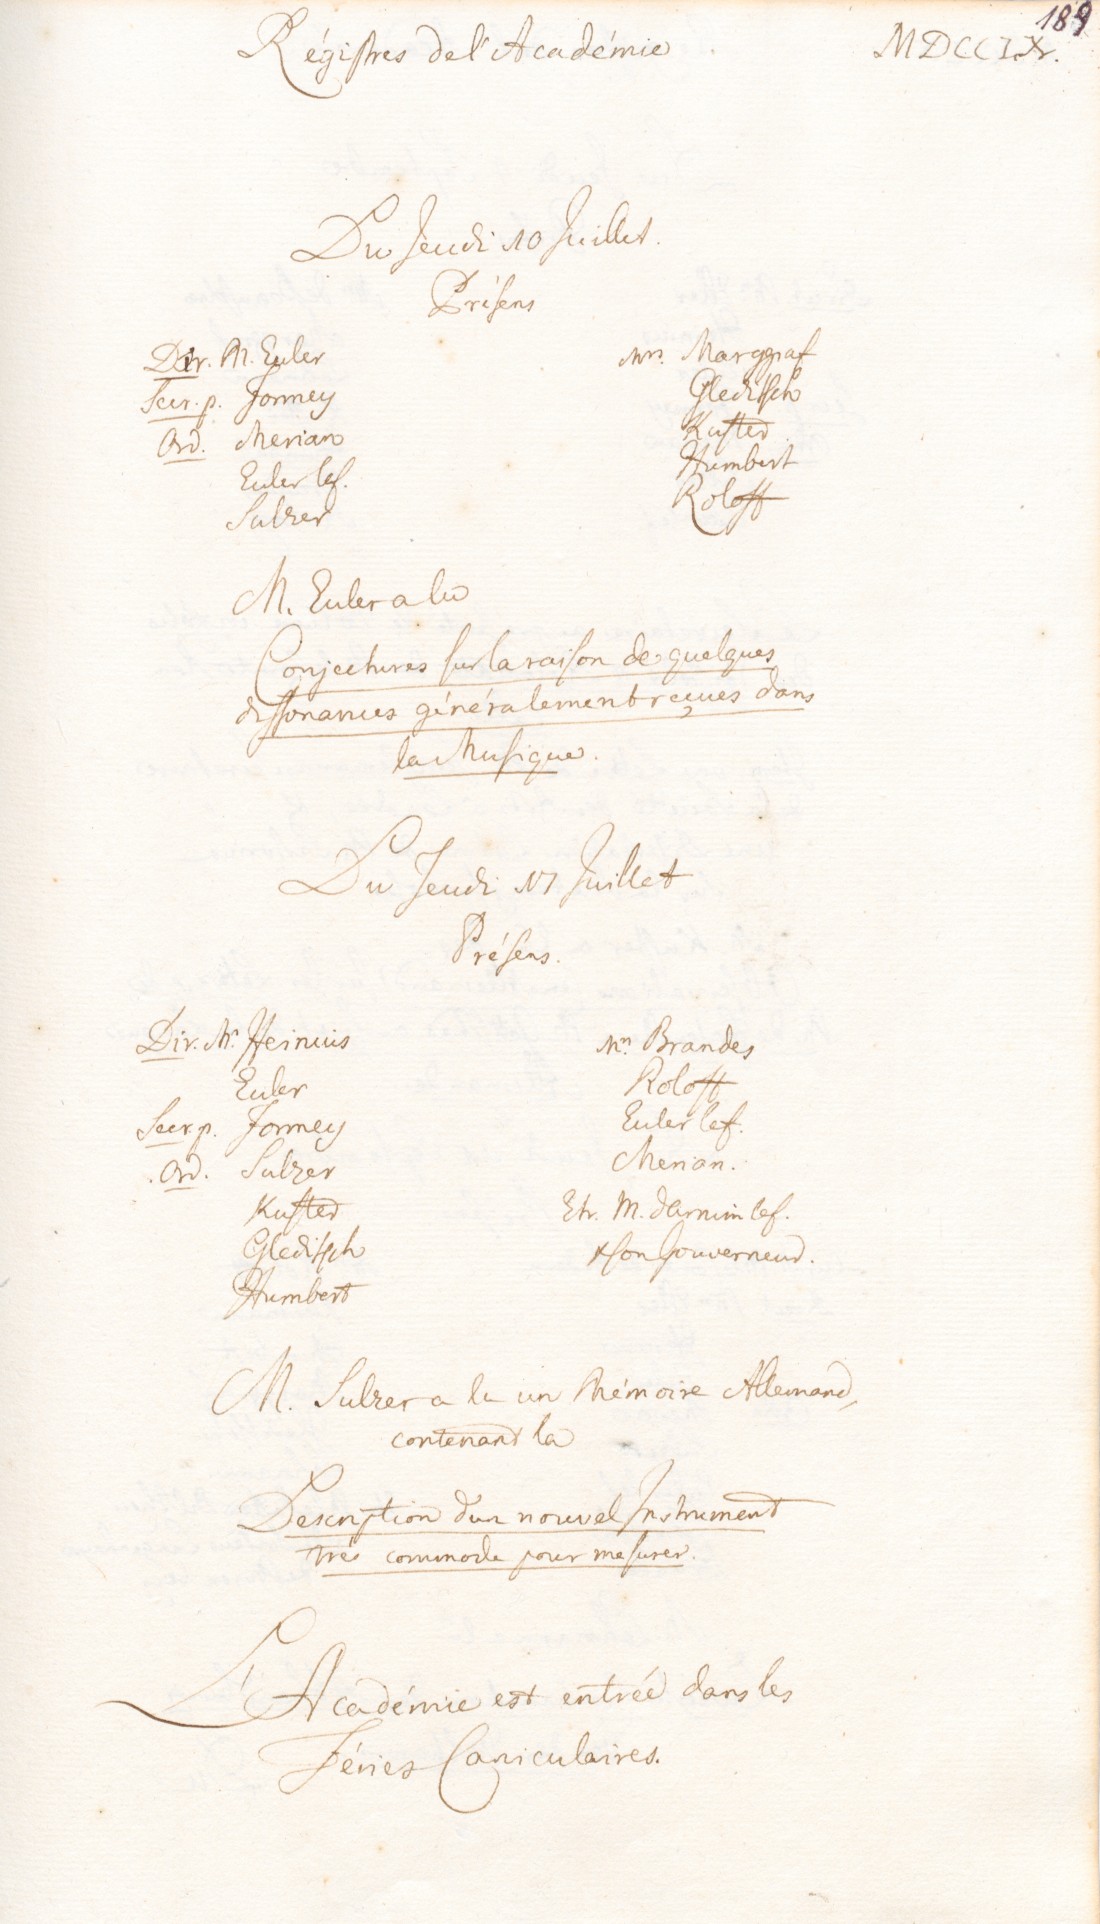 189
Régistres de l'Académie MDCCLX.
Du Jeudi 10 Juillet.
Présens
Dir. M. Euler
Secr. p. Formey
Ord. Merian
Euler le f.
Sulzer
Mrs. Marggraf
Gleditsch
Kuster
Humbert
Roloff
M. Euler a lu
Conjectures sur la raison de quelques
dissonances généralement reçues dans
la Musique.
Du Jeudi 17 Juillet
Présens.
Dir. Mr. Heinius
Euler
Secr p. Formey
Ord. Sulzer
Kuster
Gleditsch
Humbert
Mrs. Brandes
Roloff
Euler le f.
Merian.
Etr. M. d'Arnim le f.
& son Gouverneur.
M. Sulzer a lu un Mémoire Allemand,
contenant la
Description d'un nouvel Instrument
très commode pour mesurer.
L'Académie est entrée dans les
Féries Caniculaires.